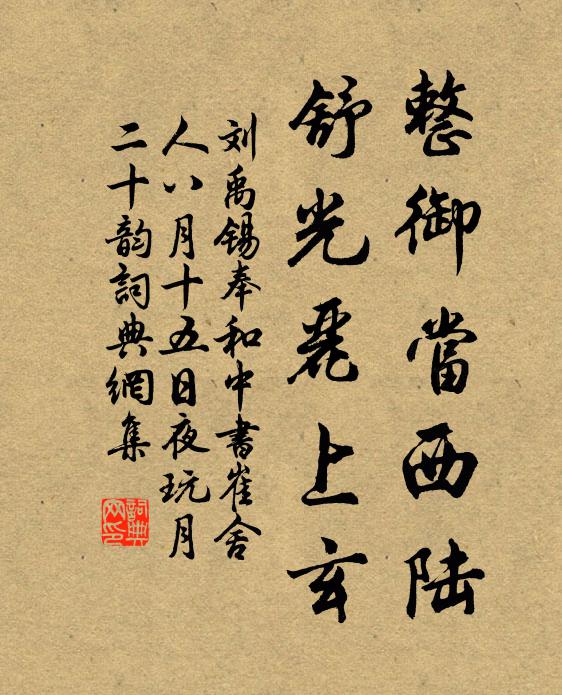 整御當西陆
舒光麗上玄
刘禹锡奉和中書崔舍
人八月十五日夜玩月
二十韵詞典網集
詞典
网印